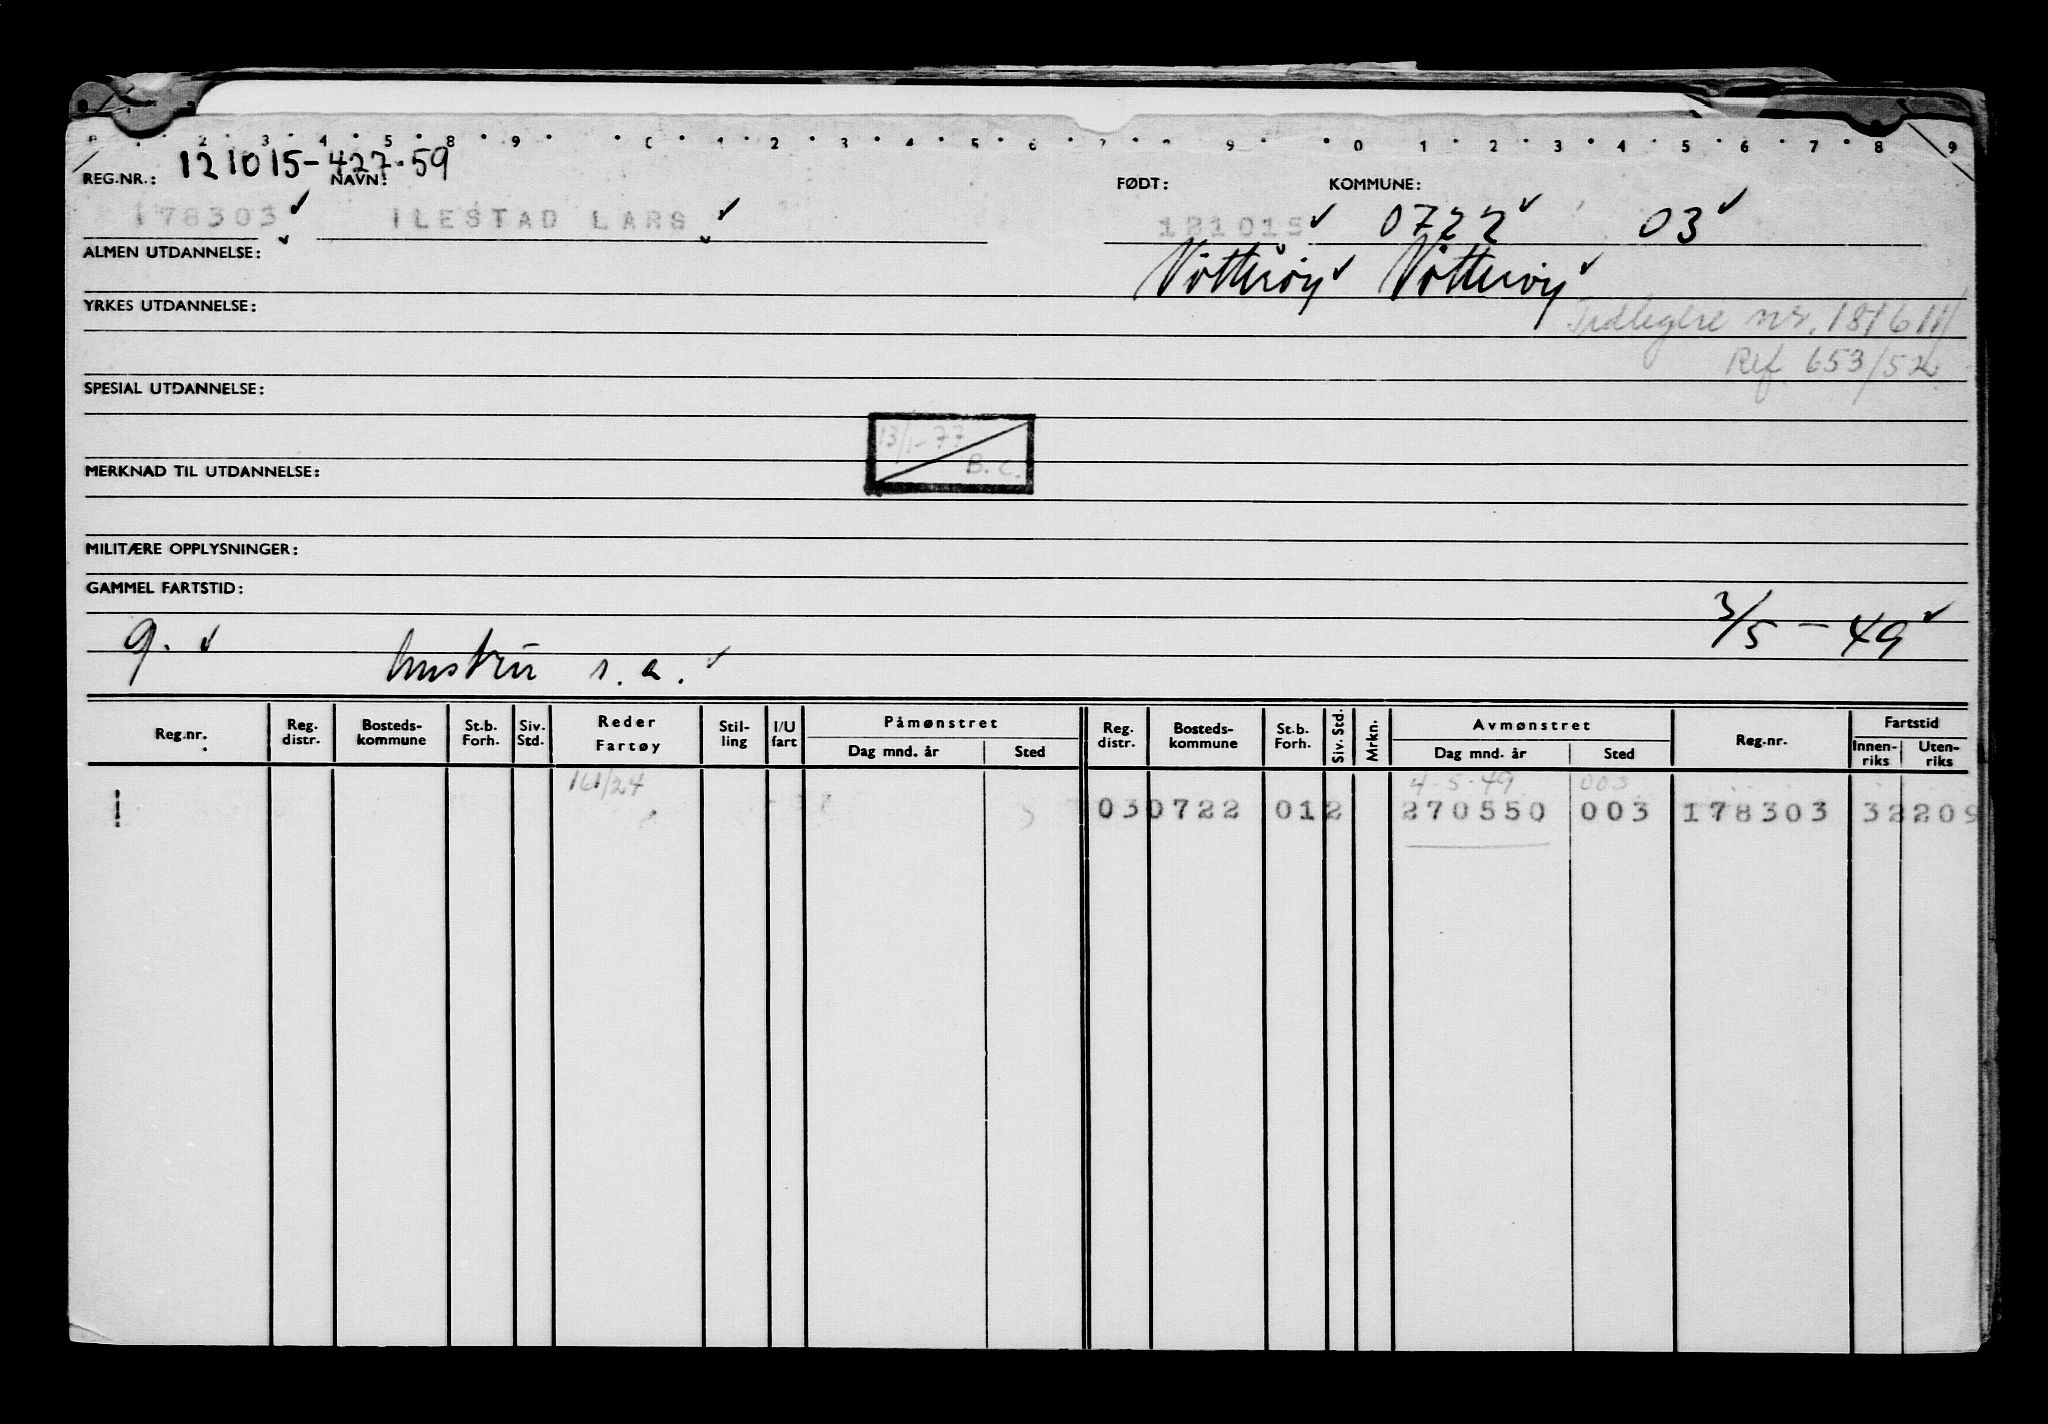 2 3 4 5 8 9 0 1 2 3 4 5 6 7 8 9 0 1 2 3 4 5 6 7 8 9
121015-427.59
REG.NR.: NAVN: FØDT: KOMMUNE:
178303 ILESTAD LARS 121015 0722 03
ALMEN UTDANNELSE: Nøtterøy Nøtterøy
YRKES UTDANNELSE: Tidligere nr. 181611
Ref. 653/52
SPESIAL UTDANNELSE:
13/1-77
B.C.
MERKNAD TIL UTDANNELSE:
MILITÆRE OPPLYSNINGER:
GAMMEL FARTSTID:
3/5-49
g. hustru s.a.
Reg.nr. Reg. distr. Bosteds-kommune St.b. Forh. Siv. Std. Reder Fartøy Stil-ling I/U fart Påmønstret Dag mnd. år Sted Reg. distr. Bosteds-kommune St.b. Forh. Siv. Std. Mrkn. Avmønstret Dag mnd. år Sted Reg.nr. Fartstid Innen-riks Uten-riks
161/24 4-5-49 003
030722 012 270550 003 178303 32209